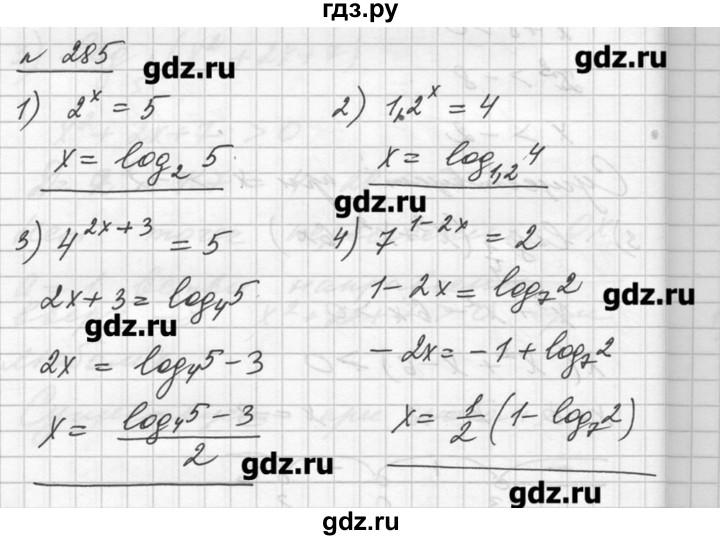 гдз.ру
№ 285
gdz.ru
gdz.ru
1) 2^x = 5
x = log_2 5
2) 1,2^x = 4
x = log_{1,2} 4
gdz.ru
3) 4^{2x+3} = 5
2x+3 = log_4 5
gdz.ru
2x = log_4 5 - 3
x = \frac{log_4 5 - 3}{2}
4) 7^{1-2x} = 2
1-2x = log_7 2
gdz.ru
-2x = -1 + log_7 2
x = \frac{1}{2} (1 - log_7 2)
gdz.ru
gdz.ru
gdz.ru